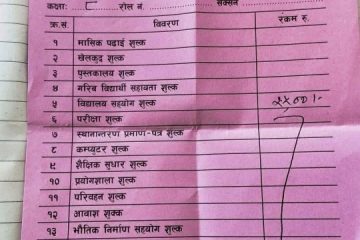 कक्षा: ८ रोल नं. सेक्सन
क्र.सं. विवरण रकम रु.
१ मासिक पढाई शुल्क
२ खेलकुद शुल्क
३ पुस्तकालय शुल्क
४ गरिब विद्यार्थी सहायता शुल्क
५ विद्यालय सहयोग शुल्क २५००।-
६ परीक्षा शुल्क
७ स्थानान्तरण प्रमाण-पत्र शुल्क
८ कम्प्युटर शुल्क
९ शैक्षिक सुधार शुल्क
१० प्रयोगशाला शुल्क
११ परिवहन शुल्क
१२ आवाश शुल्क
१३ भौतिक निर्माण सहयोग शुल्क